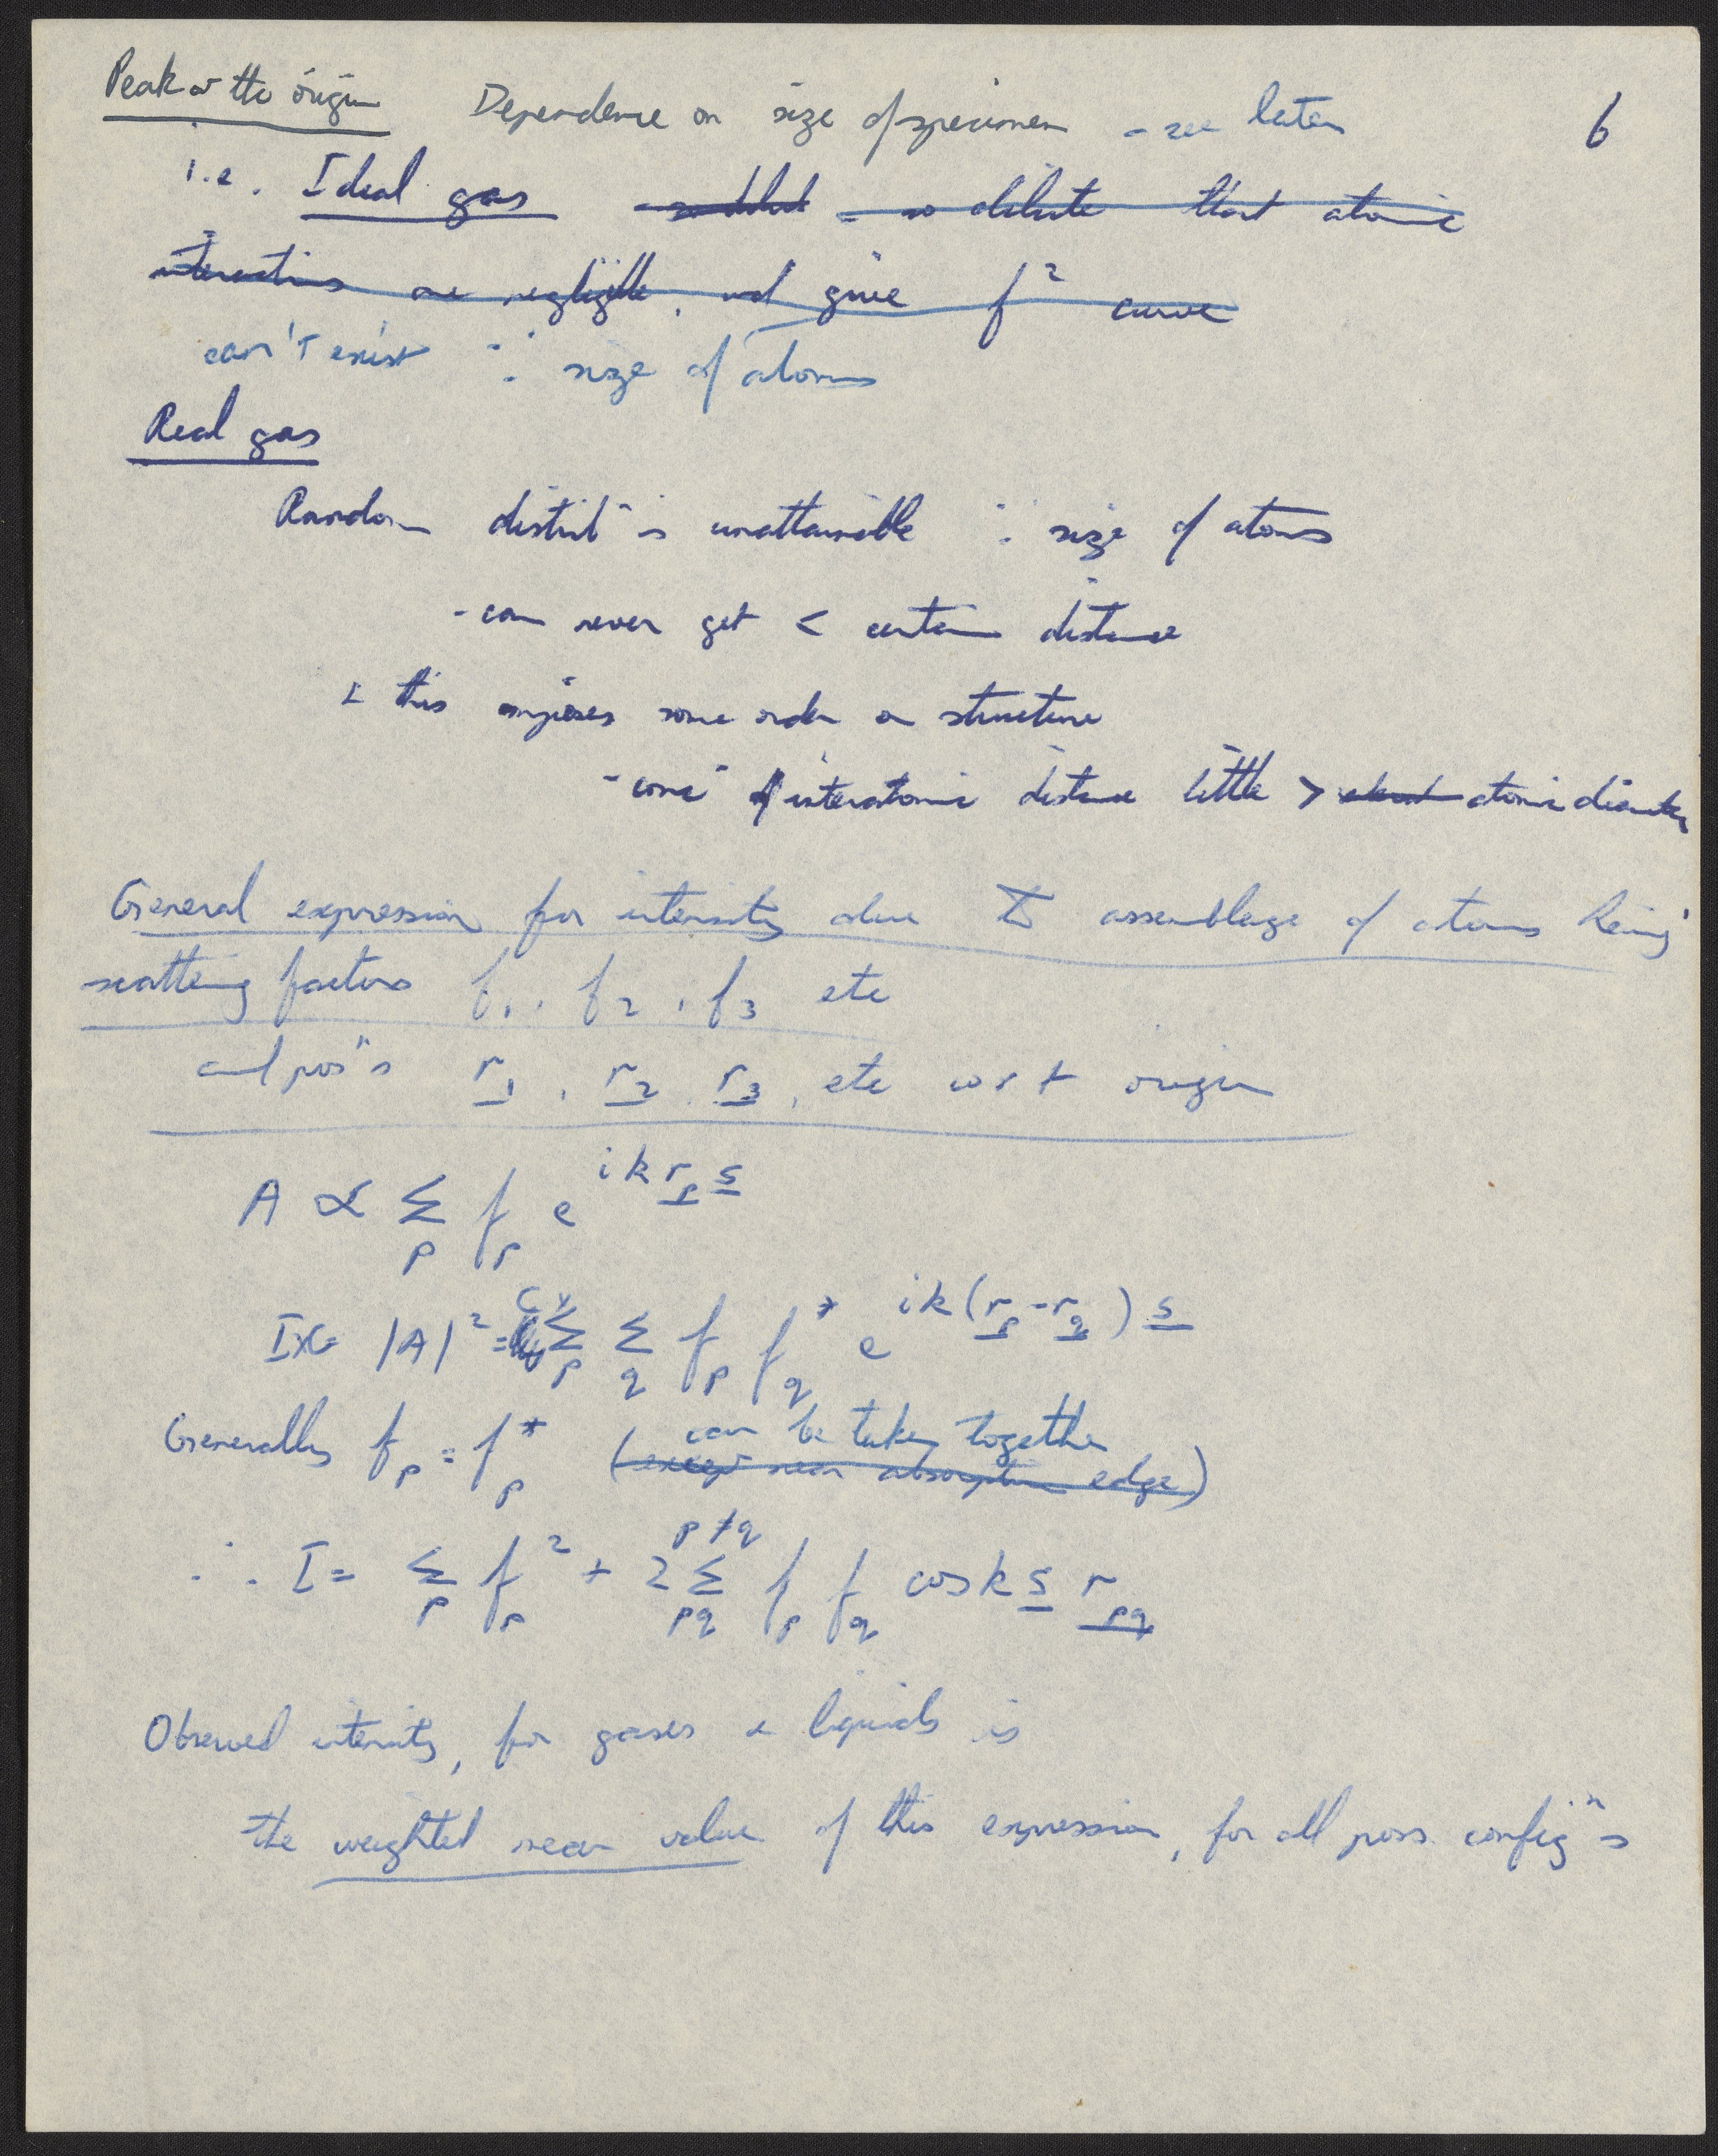 Peak at the origin Dependence on size of specimen - see later 6
i.e. Ideal gas - so dilute - so dilute that atomic
interactions are negligible, and give f² curve
can't exist ∵ size of atoms
Real gas
Random distribⁿ is unattainable ∵ size of atoms
- can never get < certain distance
& this imposes some order on structure
- interatomic distance little > atomic diameter
General expression for intensity due to assemblage of atoms having
scattering factors f₁, f₂, f₃ etc
and posⁿs r₁, r₂, r₃, etc w r t origin
A ∝ Σ_p f_p e^{ik r_p s}
I ∝ |A|² = Σ_p Σ_q f_p f_q* e^{ik(r_p - r_q) s}
Generally f_p = f_p* (can be taken together
except near absorption edge)
∴ I = Σ_p f_p² + 2 Σ_{pq}^{p≠q} f_p f_q cos k s r_pq
Observed intensity, for gases & liquids is
the weighted mean value of this expression, for all poss. configⁿs